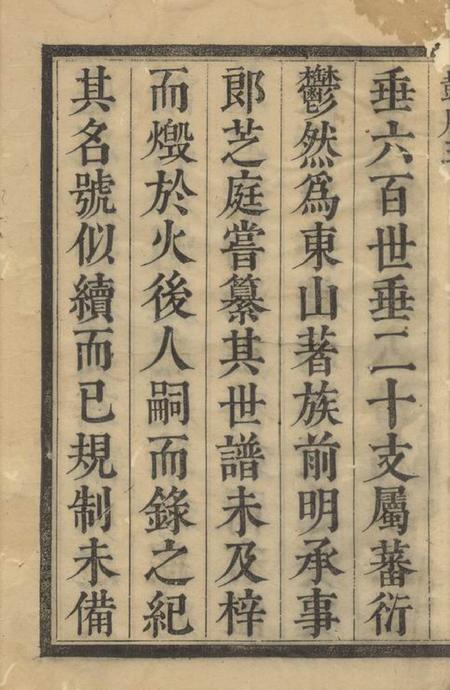 垂六百世垂二十支屬蕃衍
鬱然爲東山著族前明承事
郎芝庭嘗纂其世譜未及梓
而燬於火後人嗣而錄之紀
其名號似續而已規制未備